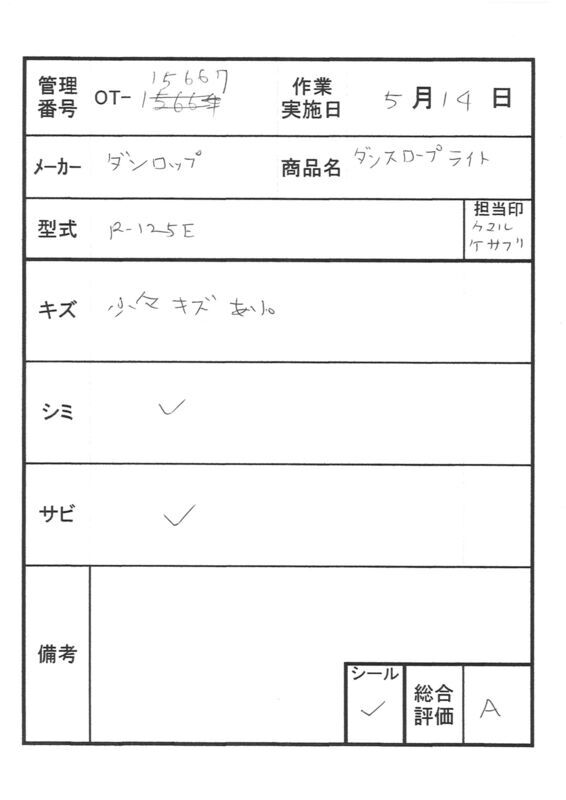 管理番号 OT- 15667
作業実施日 5月14日
メーカー ダンロップ
商品名 ダンスロープライト
型式 R-125E
担当印
ケサブリ
キズ 少々キズあり。
シミ ✓
サビ ✓
備考
シール ✓
総合評価 A